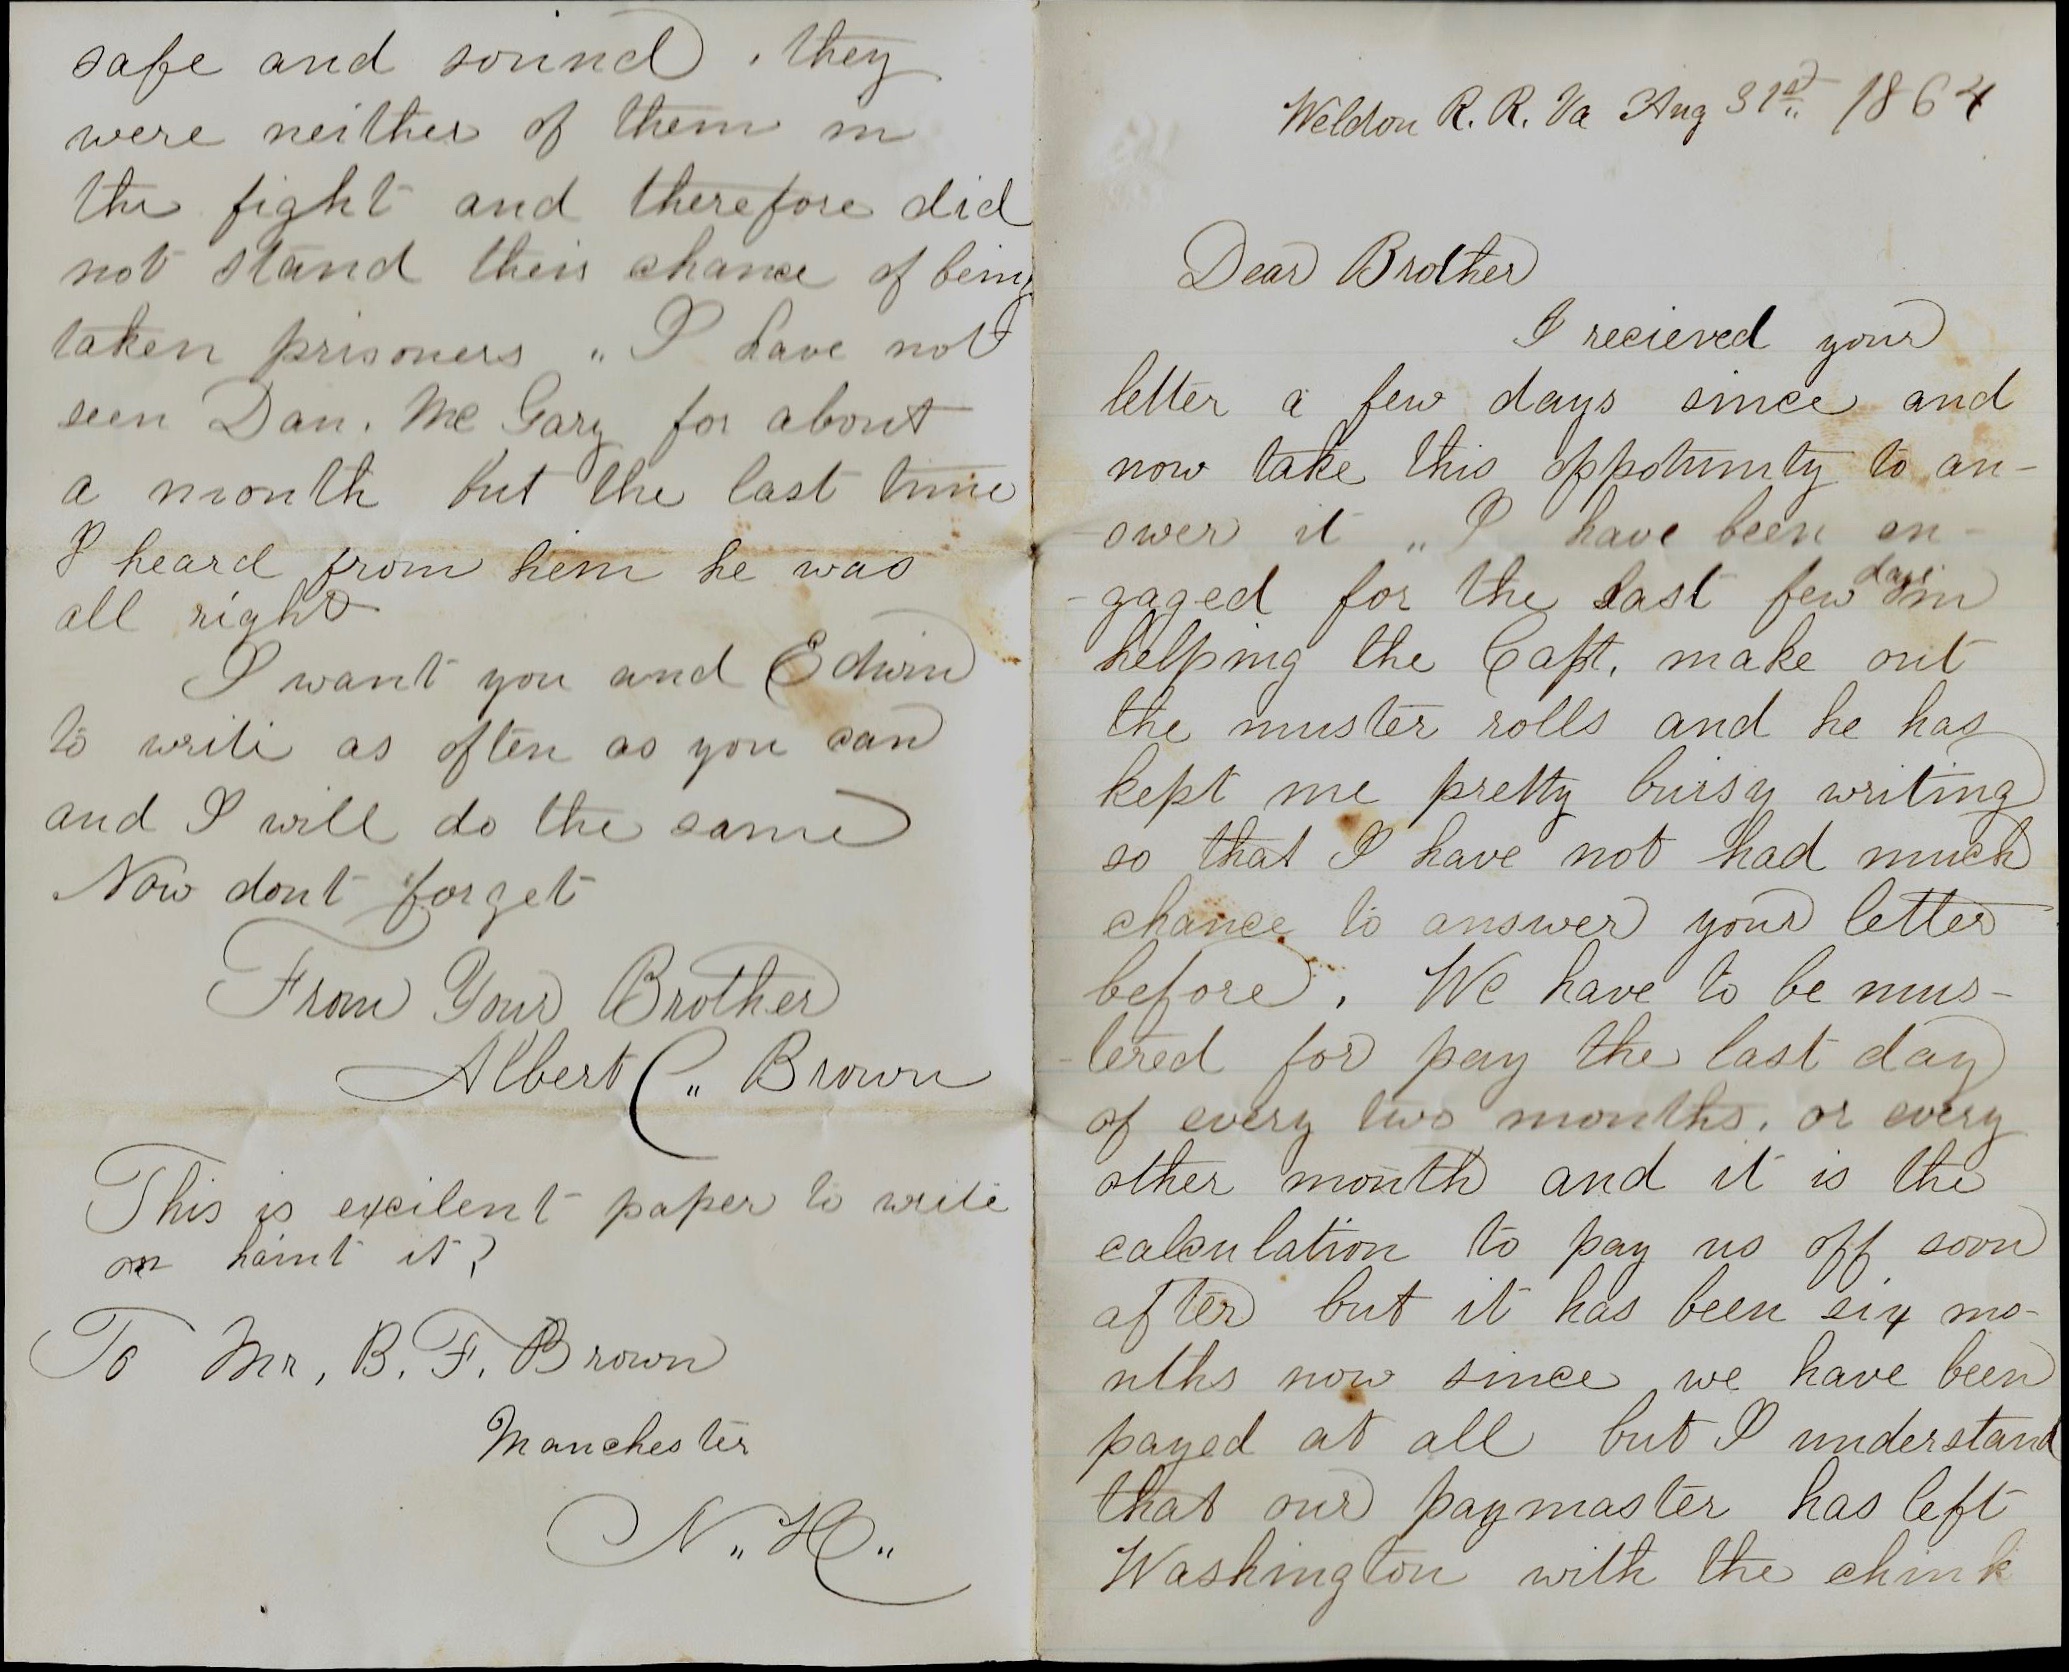 Weldon R. R. Va Aug 31st 1864
Dear Brother
I recieved your
letter a few days since and
now take this oppotunity to an-
-swer it „ I have been en-
-gaged for the last few days in
helping the Capt. make out
the muster rolls and he has
kept me pretty buisy writing
so that I have not had much
chance to answer your letter
before. We have to be mus-
-tered for pay the last day
of every two months. or every
other month and it is the
calculation to pay us off soon
after but it has been six mo-
nths now since we have been
payed at all but I understand
that our paymaster has left
Washington with the chink
safe and sound. they
were neither of them in
the fight and therefore did
not stand their chance of being
taken prisoners „ I have not
seen Dan. Mc Gary for about
a month but the last time
I heard from him he was
all right
I want you and Edwin
to write as often as you can
and I will do the same
Now dont forget
From Your Brother
Albert C„ Brown
This is excilent paper to write
on haint it?
To Mr, B. F. Brown
Manchester
N„ H„